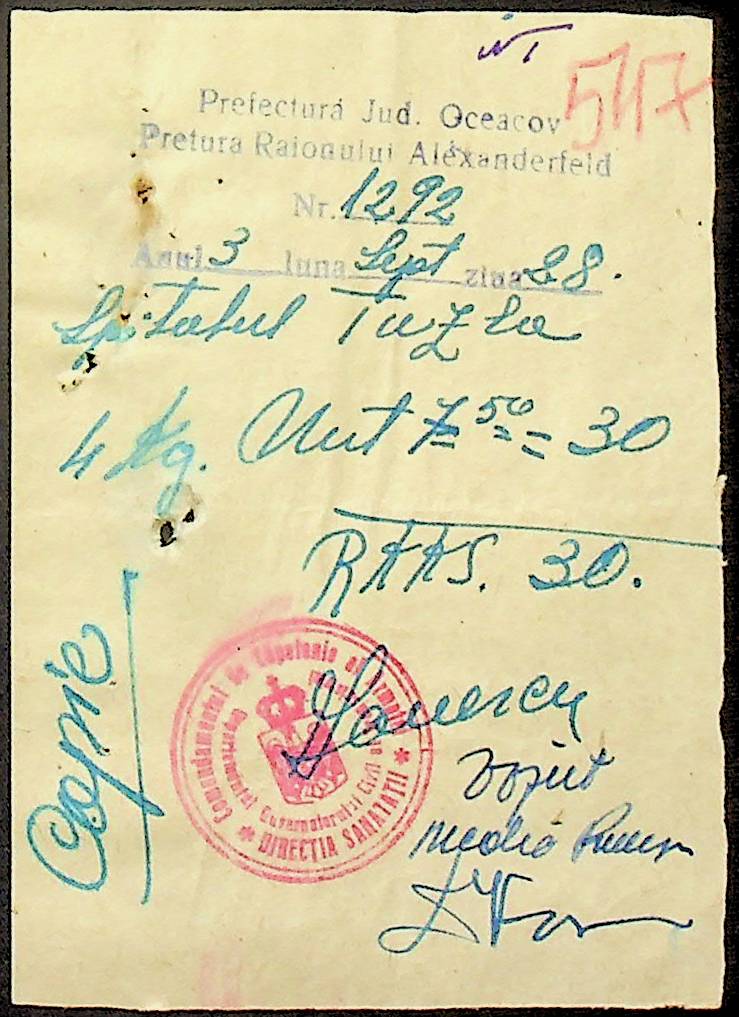 517
Prefectura Jud. Oceacov
Pretura Raionului Alexanderfeld
Nr. 1292
Anul 3 luna Sept ziua 28.
Spitalul Tuzla
4 Kg. Unt 7 50 = 30
RKKS. 30.
Copie
Comandamentul de Căpetenie al Armatei
Departamentul Guvernatorului Civil
* DIRECȚIA SANATATII *
medic